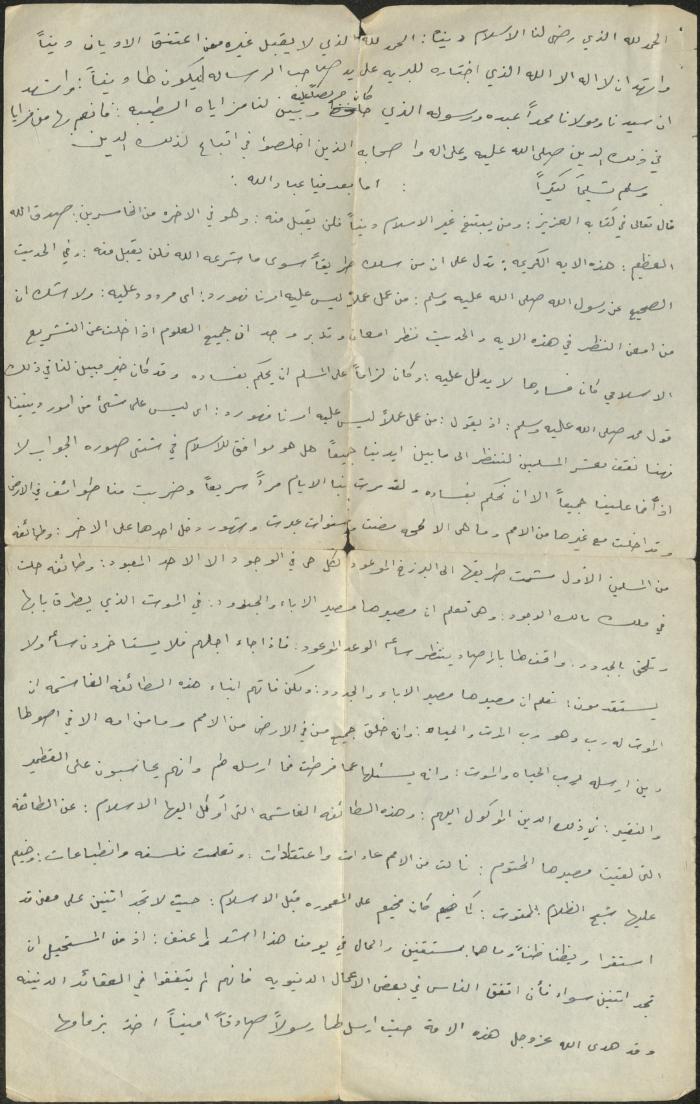 الحمد لله الذي رضى لنا الاسلام دينا : الحمد لله الذي لا يقبل غيره ممن اعتنق الاديان ديناً
واشهد ان لا اله الا الله الذي اختاره للبريه على يد صاحب الرساله ليكون لها ديناً : واشهد
ان سيدنا ومولانا محمداً عبده ورسوله الذي كان وبين لنا مزاياه الطيبه : فانعم بها من مزايا
في ذلك الدين صلى الله عليه وعلى اله واصحابه الذين اخلصوا في اتباع لذلك الدين
وسلم تسليماً كثيراً : اما بعد فيا عباد الله :
قال تعالى في كتابه العزيز : ومن يبتغ غير الاسلام ديناً فلن يقبل منه : وهو في الاخره من الخاسرين : صدق الله
العظيم : هذه الايه الكريمه : تدل على ان من سلك طريقاً سوى ما شرعه الله فلن يقبل منه : وفي الحديث
الصحيح عن رسول الله صلى الله عليه وسلم : من عمل عملاً ليس عليه امرنا فهو رد : اى مردود عليه : ولا شك ان
من امعن النظر في هذه الايه والحديث نظر امعان وتدبر وجد ان جميع العلوم اذا خلت عن التشريع
الاسلامي كان فسادها لا يدلل عليه : وكان لزاماً على المسلم ان يحكم بفساده وقد كان خير مبين لنا في ذلك
قول محمد صلى الله عليه وسلم : اذ يقول : من عمل عملاً ليس عليه امرنا فهو رد : اى ليس على شئ من امور ديننا
فهنا نقف معشر المسلمين لننظر الى ما بين ايدينا جميعاً هل هو موافق للاسلام في شتى صوره الجواب لا
اذاً فما علينا جميعاً الا ان نحكم بفساده ولقد مرت بنا الايام مراً سريعاً وضربت منا طوائف في الارض
وتداخلت مع غيرها من الامم وما هى الا لمحه مضت وسنوات عبرت وشهور دخل احدها على الاخر : وطائفه
من المسلمين الأول سلكت طريقها الى البرزخ الموعود لكل حى في الوجود الا الاحد المعبود : وطائفه حلت
في ملك مالك الوجود : وهى تعلم ان مصيرها مصير الاباء والجدود : في الموت الذي يطرق بابها
وتلحق بالجدود : واقف لها بالمرصاد ينتظر ساعه الوعد الموعود : فاذا جاء اجلهم فلا يستاخرون ساعه ولا
يستقدمون : تعلم ان مصيرها مصير الاباء والجدود : ولكن فاتهم انباء هذه الطائفه الغاشمه ان
الموت له رب وهو رب الموت والحياه : وانه خلق جميع من في الارض من الامم وما من امه الا في اصولها
دين ارسله لرب الحياه والموت : وانه يسئلها عما فرطت فما ارسله لهم وانهم يحاسبون على القطمير
والنقير : في ذلك الدين الموكول اليهم : وهذه الطائفه الغاشمه التى أوكل اليها الاسلام : عن الطائفه
التى لقيت مصيرها المحتوم : نالت من الامم عادات واعتقادات : وتعلمت فلسفه وانطباعات : وخيم
عليها شبح الظلام الممقوت : كما كان مخيم على المعموره قبل الاسلام : حيث لا تجد اثنين على معتقد
استقرا ويظنا ظناً وما هما بمستقنين والحال في يومنا هذا اشد واعنف : اذ من المستحيل ان
تجد اثنين سواء فأن اتفق الناس في بعض الاعمال الدنيويه فانهم لم يتفقوا في العقائد الدينيه
وقد هدى الله عز وجل هذه الامة حيث ارسل لها رسولاً صادقاً اميناً اخذ بزمامها